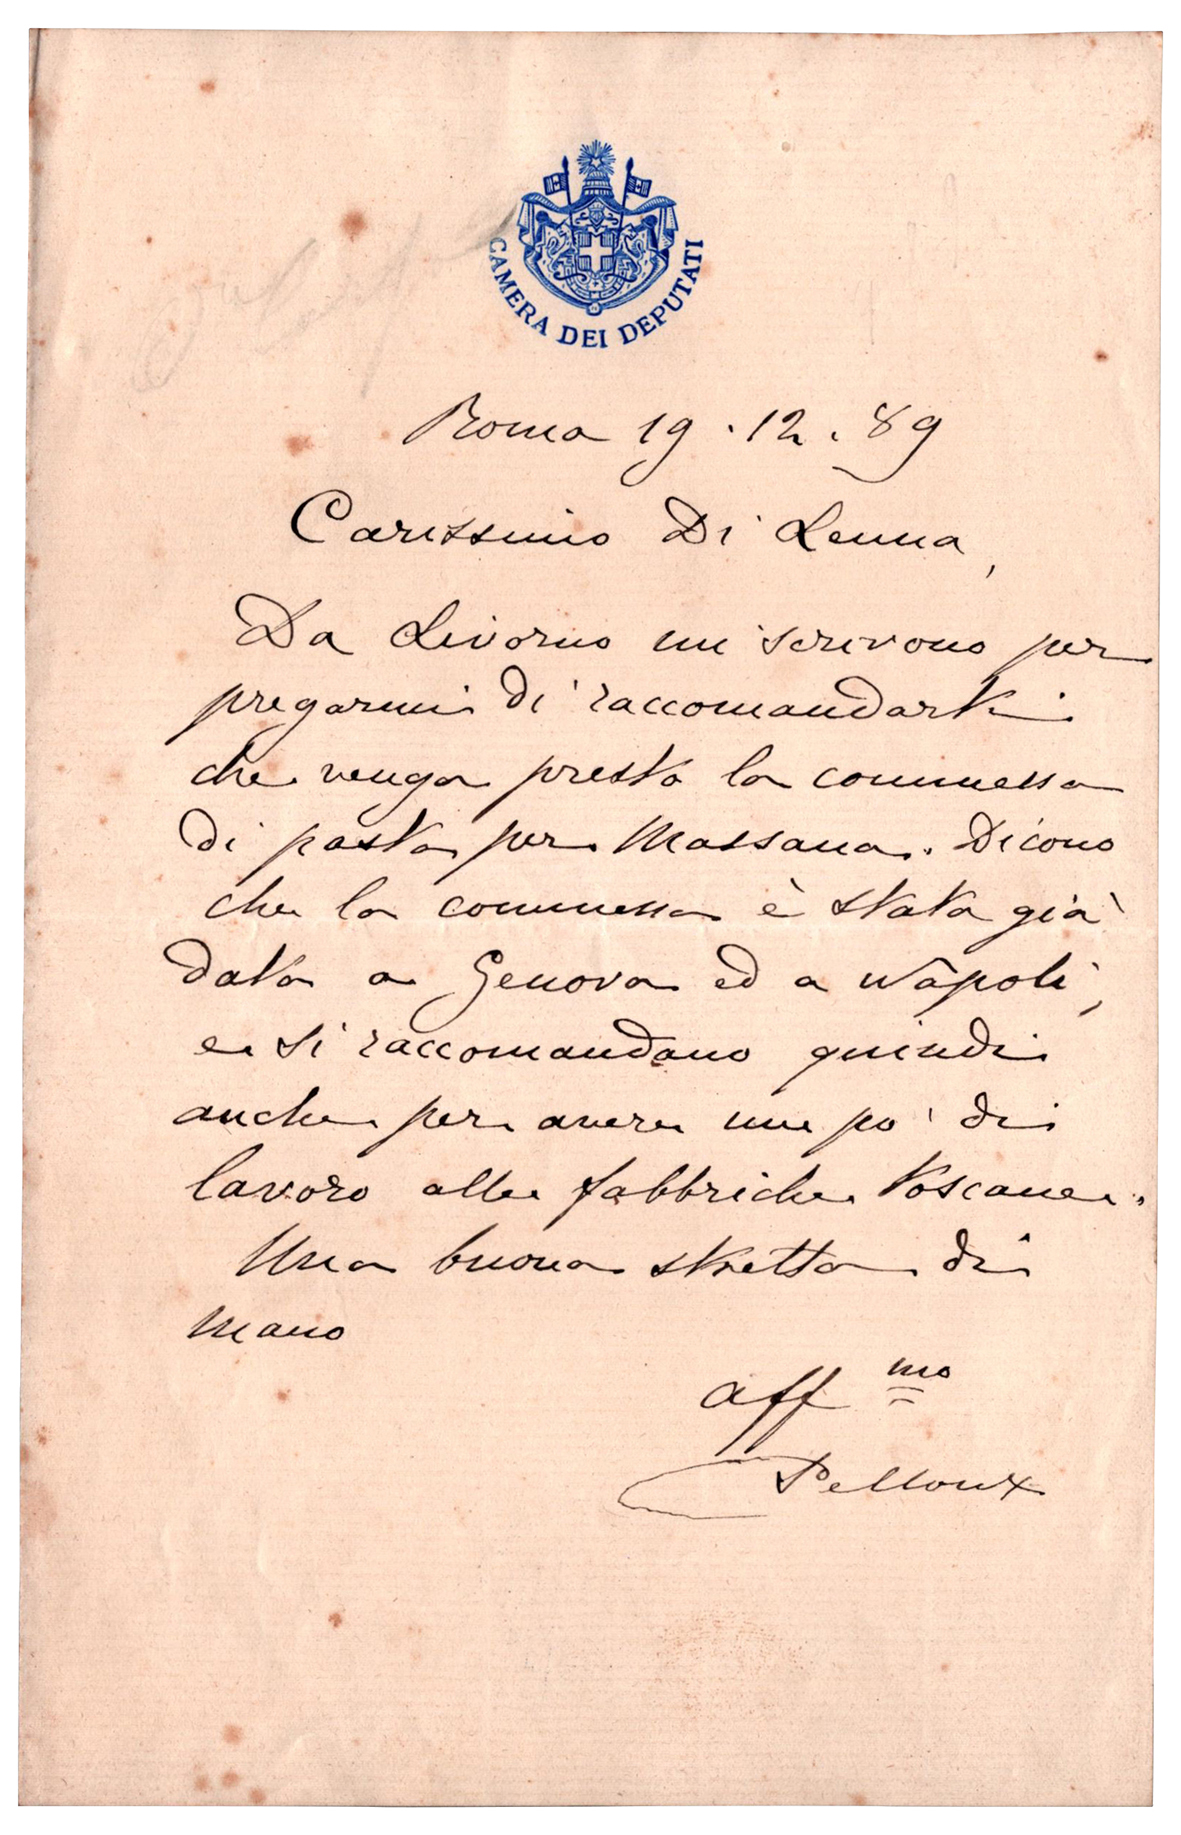 CAMERA DEI DEPUTATI
Roma 19.12.89
Carissimo Di Lenna,
Da Livorno mi scrivono per
pregarmi di raccomandarti
che venga presto la commessa
di pasta per Massaua. Dicono
che la commessa è stata già
data a Genova ed a Napoli,
e si raccomandano quindi
anche per avere un po' di
lavoro alle fabbriche toscane.
Una buona stretta di
mano
aff mo
Pelloux